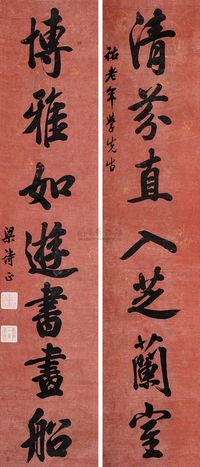 清芬直入芝蘭室
祐老年學先生
博雅如遊書畫船
梁詩正